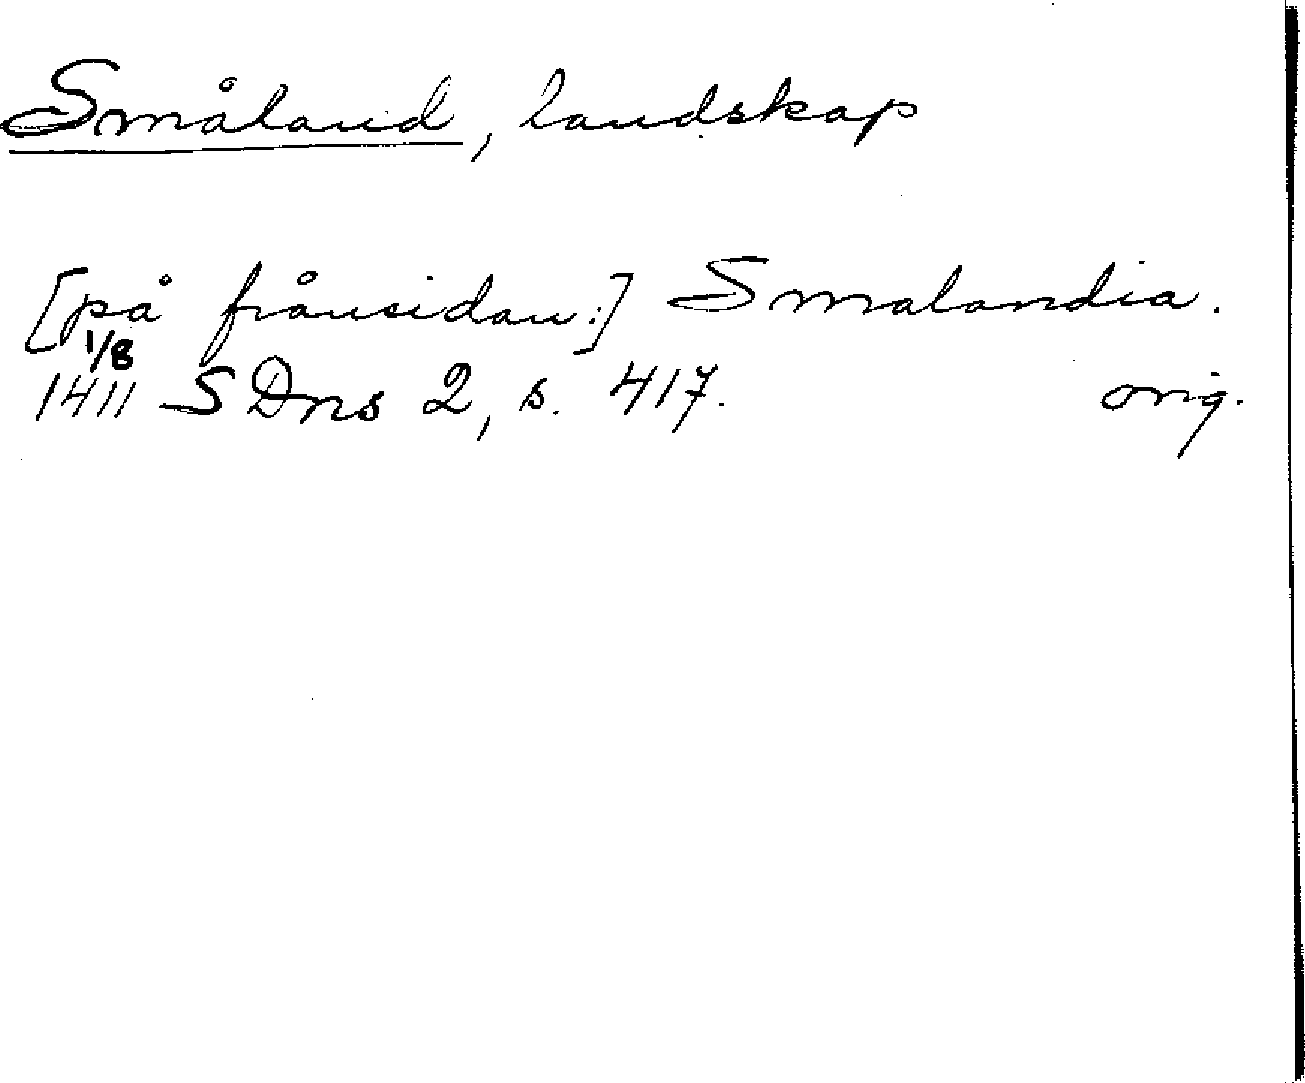 Småland, landskap
[på frånsidan:] Smalandia.
1/8
1411 SDns 2, s. 417. orig.